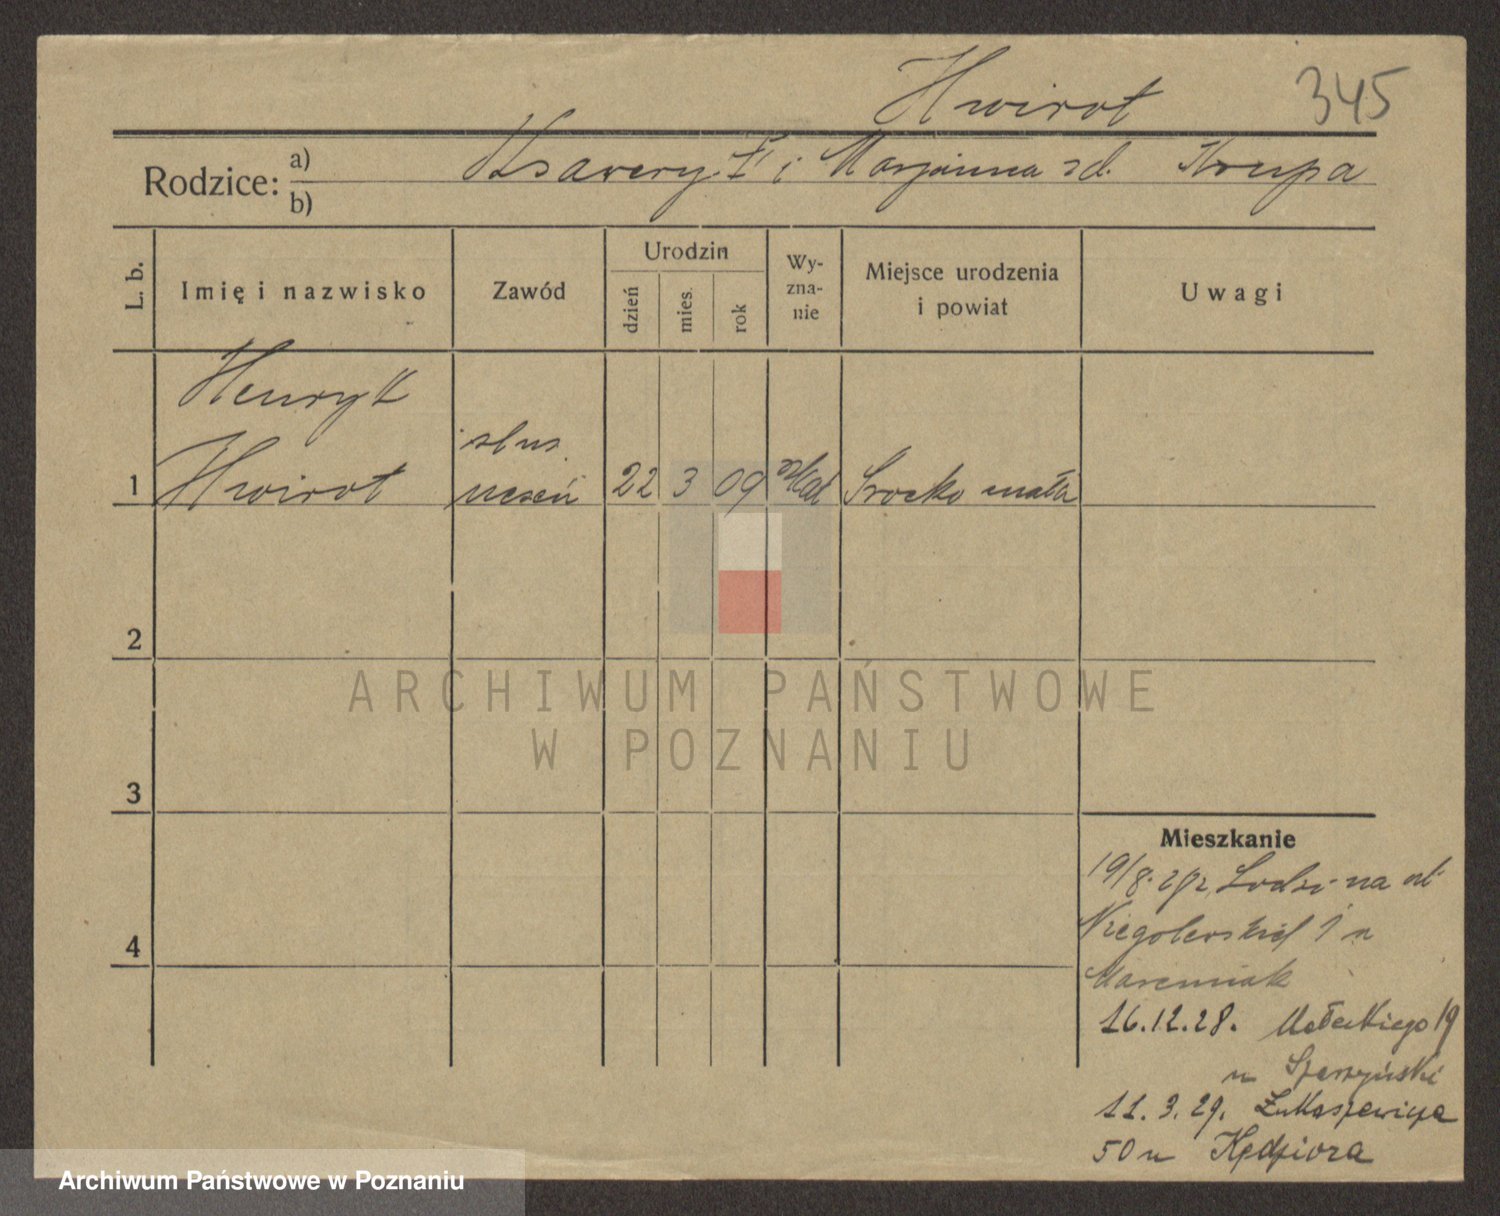 Hwirot 345
Rodzice: a) b) Ksawery i Marjanna zd. Krupa
L. b. Imię i nazwisko Zawód Urodzin dzień mies. rok Wyznanie Miejsce urodzenia i powiat Uwagi
Henryk
Hwirot
ślus.
uczeń
1 22 3 09 Kat Srocko małe
2
3
4
Mieszkanie
19/8. z Łodzi na ul.
Niegolewskich 1 u
Marciniak
16.12.28. Małeckiego 19
u
11.3.29. Łukaszewicza
50 u Kędziora
ARCHIWUM PAŃSTWOWE
W POZNANIU
Archiwum Państwowe w Poznaniu